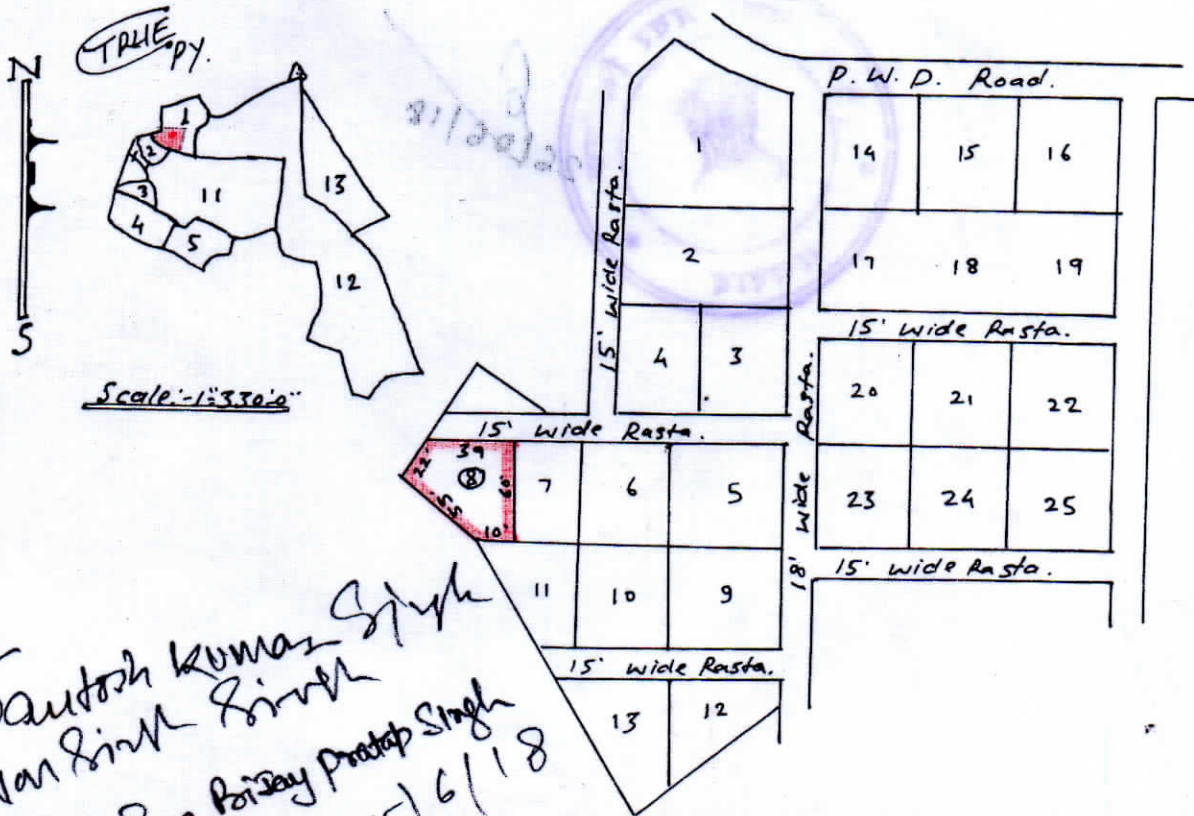 TRUE
PY.
N
S
1
2
3
4
5
11
13
12
Scale:-1"=330'-0"
26/06/18
P. W. D. Road.
15' Wide Rasta.
1
2
4 3
14 15 16
17 18 19
15' wide Rasta.
20 21 22
23 24 25
15' wide Rasta.
18' wide Rasta.
15' wide Rasta.
39
22'
8
60'
55
10'
7 6 5
11 10 9
15' wide Rasta.
13 12
Santosh Kumar Singh
Singh
Bijay Pratap Singh
6/18